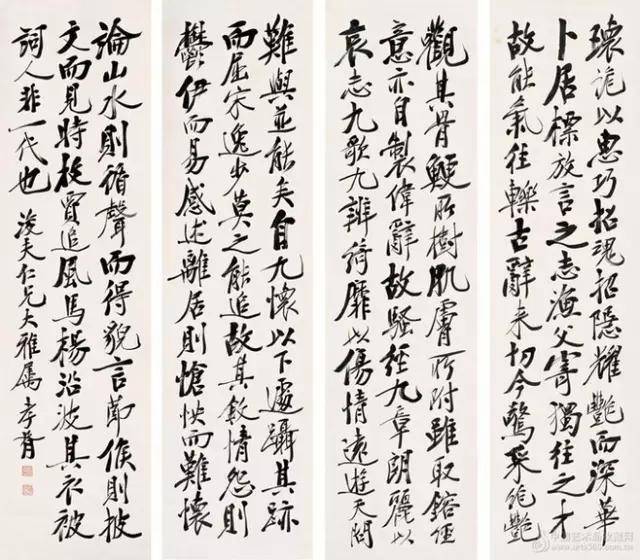 瓌詭以惠巧招魂招隱耀艷而深華
卜居標放言之志漁父寄獨往之才
故能氣往轢古辭来切今驚采絶艷
觀其骨鯁所樹肌膚所附雖取鎔經
意亦自製偉辭故騷經九章朗麗以
哀志九歌九辨綺靡以傷情遠遊天問
難與並能矣自九懷以下遽躡其跡
而屈宋逸步莫之能追故其敘情怨則
鬱伊而易感述離居則愴怏而難懷
論山水則循聲而得貌言節候則披
文而見時枚賈追風馬楊沿波其衣被
詞人非一代也 浚夫仁兄大雅属 孝胥